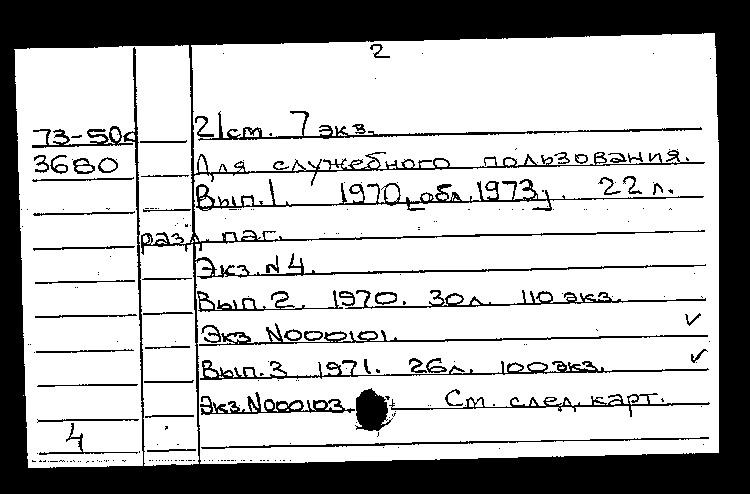 2
73-50с 21 ст. 7 экз.
3680 Для служебного пользования.
Вып. 1. 1970, [обл. 1973]. 22 л.
разд. паг.
Экз. N 4.
Вып. 2. 1970. 30 л. 110 экз.
Экз N000101. ✓
Вып. 3 1971. 26 л. 100 экз. ✓
Экз. N000103. См. след. карт.
4